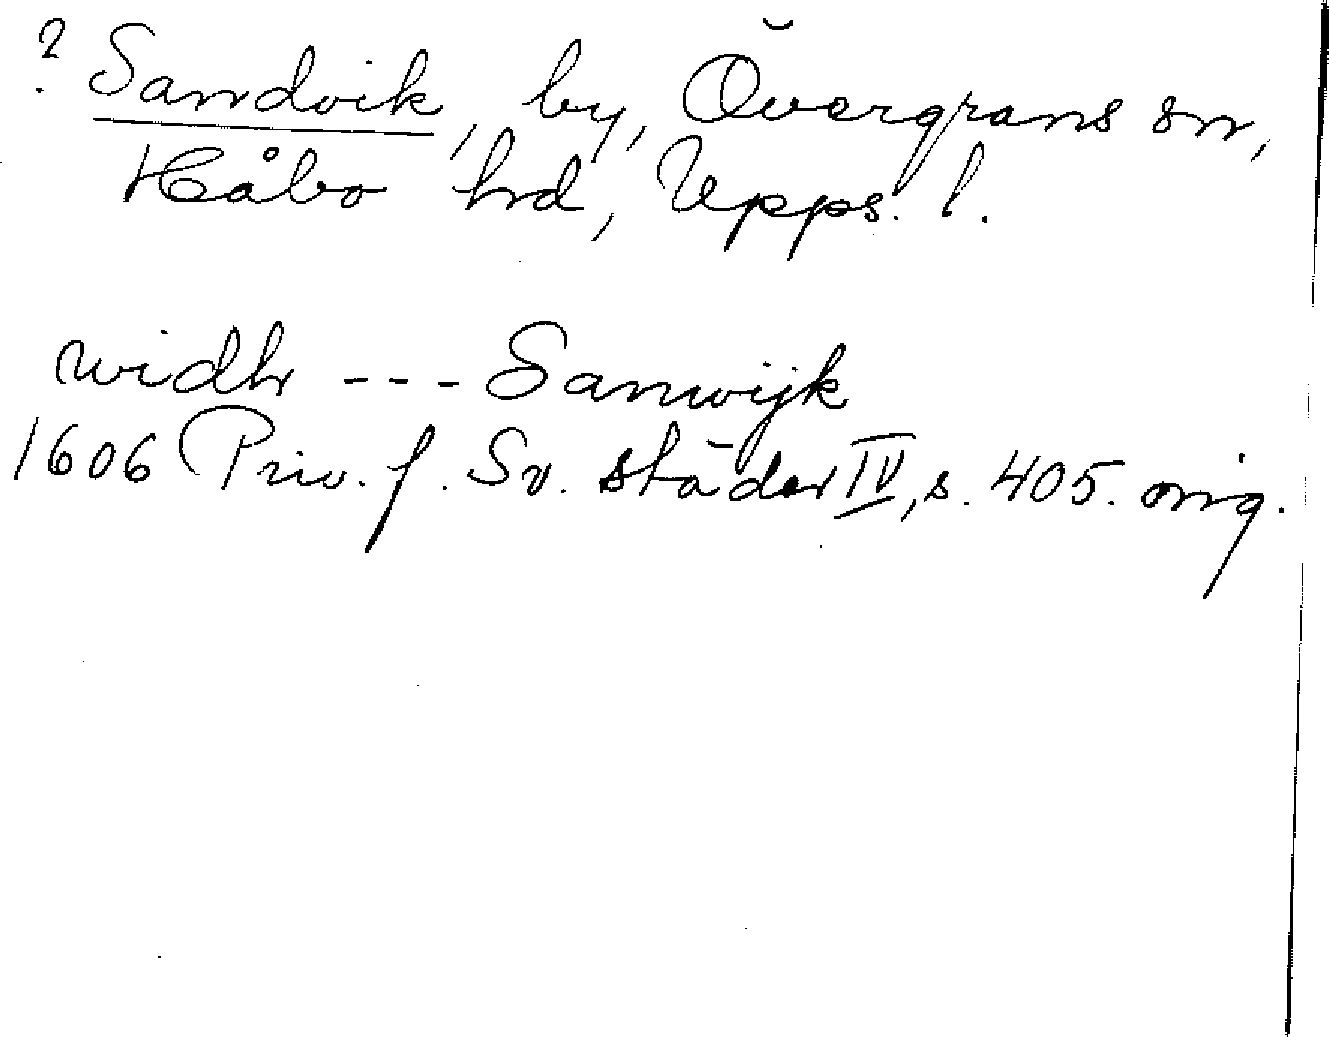 ? Sandvik, by, Övergrans sn,
Håbo hrd, Upps. l.
widh --- Sanwijk
1606 Priv. f. Sv. städer IV, s. 405. orig.